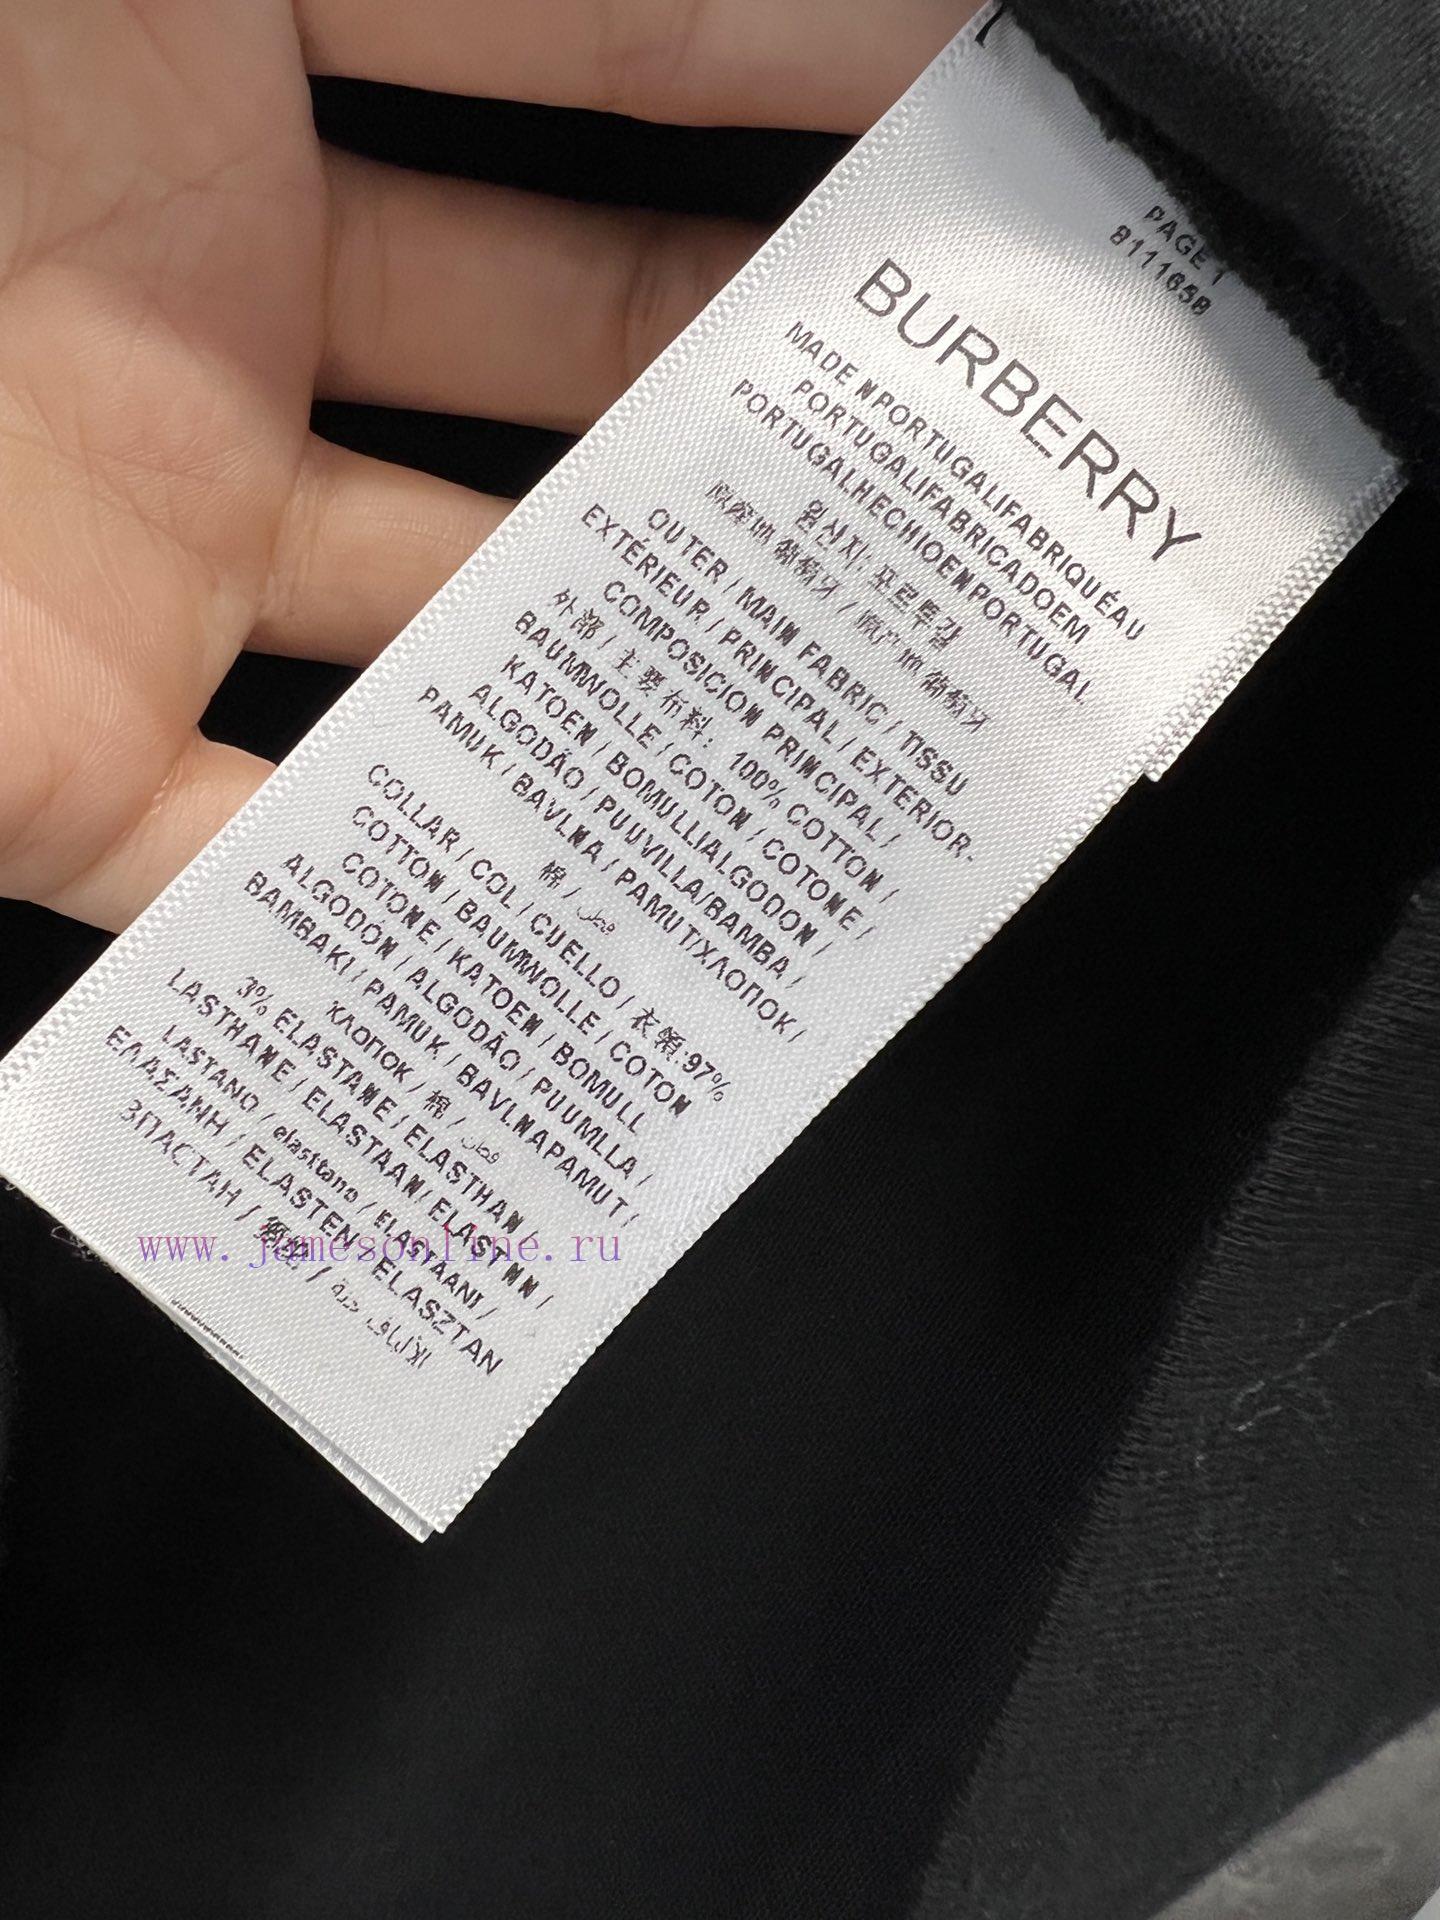 PAGE 1
8111658
BURBERRY
MADE N PORTUGALIFABRIQUÉAU
PORTUGALIFABRICADOEM
PORTUGALHECHOENPORTUGAL
원산지: 포르투갈
原產地 葡萄牙 / 原产地 葡萄牙
OUTER / MAIN FABRIC / TISSU
EXTÉRIEUR / PRINCIPAL / EXTERIOR-
COMPOSICION PRINCIPAL /
外部 / 主要布料: 100% COTTON /
BAUMWOLLE / COTON / COTONE /
KATOEN / BOMULLIALGODON /
ALGODÃO / PUUVILLA/BAMBA /
PAMUK / BAVLNA / PAMUT/ХЛОПОК /
棉 / قطن
COLLAR / COL / CUELLO / 衣領:97%
COTTON / BAUMWOLLE / COTON
COTONE / KATOEN / BOMULL
ALGODÓN / ALGODÃO / PUUMLLA /
BAMBAKI / PAMUK / BAVLNAPAMUT /
ХЛОПОК / 棉 / قطن
3% ELASTANE / ELASTHAN /
LASTHANE / ELASTAAN/ ELASTNN /
LASTANO / elasttano / ELASTAANI /
ΕΛΑΣΑΝΗ / ELASTEN / ELASZTAN
ЗПАСТАН /
www.jamesonline.ru